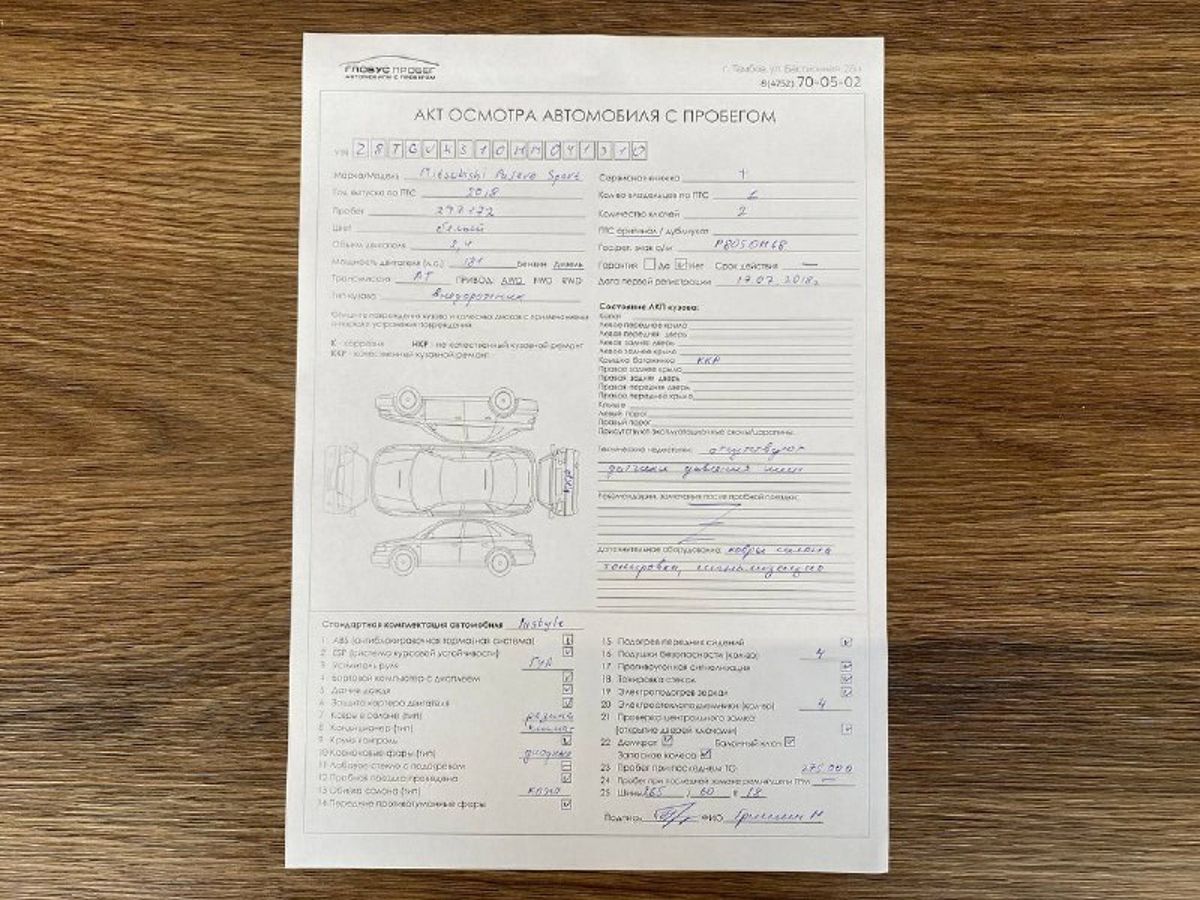 ГЛОБУС ПРОБЕГ
АВТОМОБИЛИ С ПРОБЕГОМ
г. Тамбов, ул. Бастионная,
8(4752) 70-05-02
АКТ ОСМОТРА АВТОМОБИЛЯ С ПРОБЕГОМ
VIN
Марка/Модель Mitsubishi Pajero Sport
Год выпуска по ПТС 2018
Пробег 297172
Цвет белый
Объем двигателя 2,4
Мощность двигателя (л.с.) 181 Бензин Дизель
Трансмиссия АТ ПРИВОД: AWD FWD RWD
Тип кузова внедорожник
Опишите повреждения кузова и качество дисков с применением
К - коррозия НКР - не качественный кузовной ремонт
ККР - качественный кузовной ремонт
ККР
Сервисная книжка +
Кол-во владельцев по ПТС 1
Количество ключей 2
ПТС оригинал / дубликат
Гос.рег. знак а/м Р805ОМ68
Гарантия Да Нет Срок действия —
Дата первой регистрации 17.07.2018г
Состояние ЛКП кузова:
Капот
Левое переднее крыло
Левая передняя дверь
Левая задняя дверь
Левое заднее крыло
Крышка багажника ККР
Правое заднее крыло
Правая задняя дверь
Правая передняя дверь
Правое переднее крыло
Крыша
Левый порог
Правый порог
Присутствуют эксплуатационные сколы/царапины.
Технические недостатки: отсутствуют
датчики давления шин
Рекомендации, замечания после пробной поездки:
Дополнительное оборудование: ковры салона
тонировка, сигнализация
Стандартная комплектация автомобиля Instyle
1 ABS (антиблокировочная тормозная система)
2 ESP (система курсовой устойчивости)
3 Усилитель руля ГУР
4 Бортовой компьютер с дисплеем
5 Датчик дождя
6 Защита картера двигателя
7 Ковры в салоне (тип) резина
8 Кондиционер (тип) климат
9 Круиз контроль
10 Ксеноновые фары (тип) диодные
11 Лобовое стекло с подогревом
12 Пробная поездка проведена
13 Обивка салона (тип) кожа
14 Передние противотуманные фары
15 Подогрев передних сидений
16 Подушки безопасности (кол-во) 4
17 Противоугонная сигнализация
18 Тонировка стекол
19 Электроподогрев зеркал
20 Электростеклоподъемники (кол-во) 4
21 Проверка центрального замка
(открытие дверей ключами)
22 Домкрат Балонный ключ
Запасное колесо
23 Пробег при последнем ТО 275.000
24 Пробег при последней замене ремня/цепи ГРМ —
25 Шины 265 / 60 R 18
Подпись ФИО